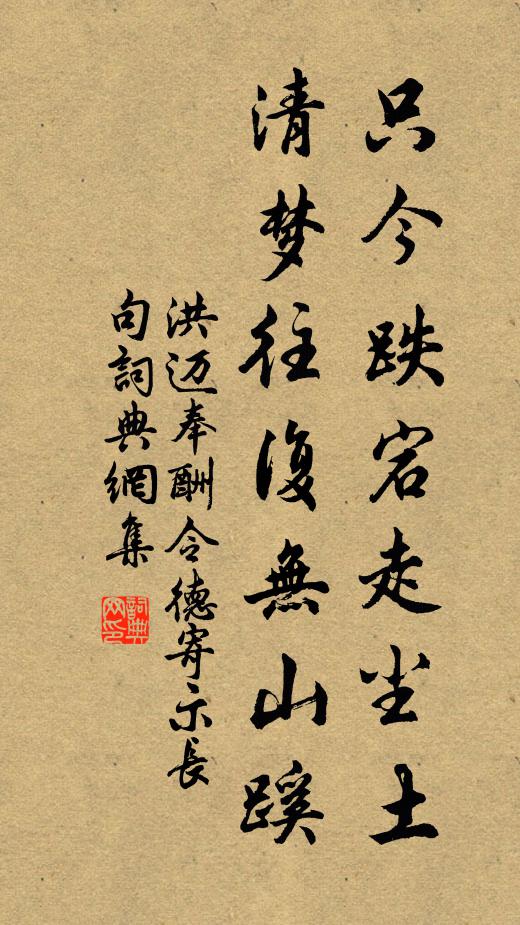 只今跌宕走尘土
清梦往復無山蹊
洪迈奉酬令德寄示長
句詞典網集
詞典网印